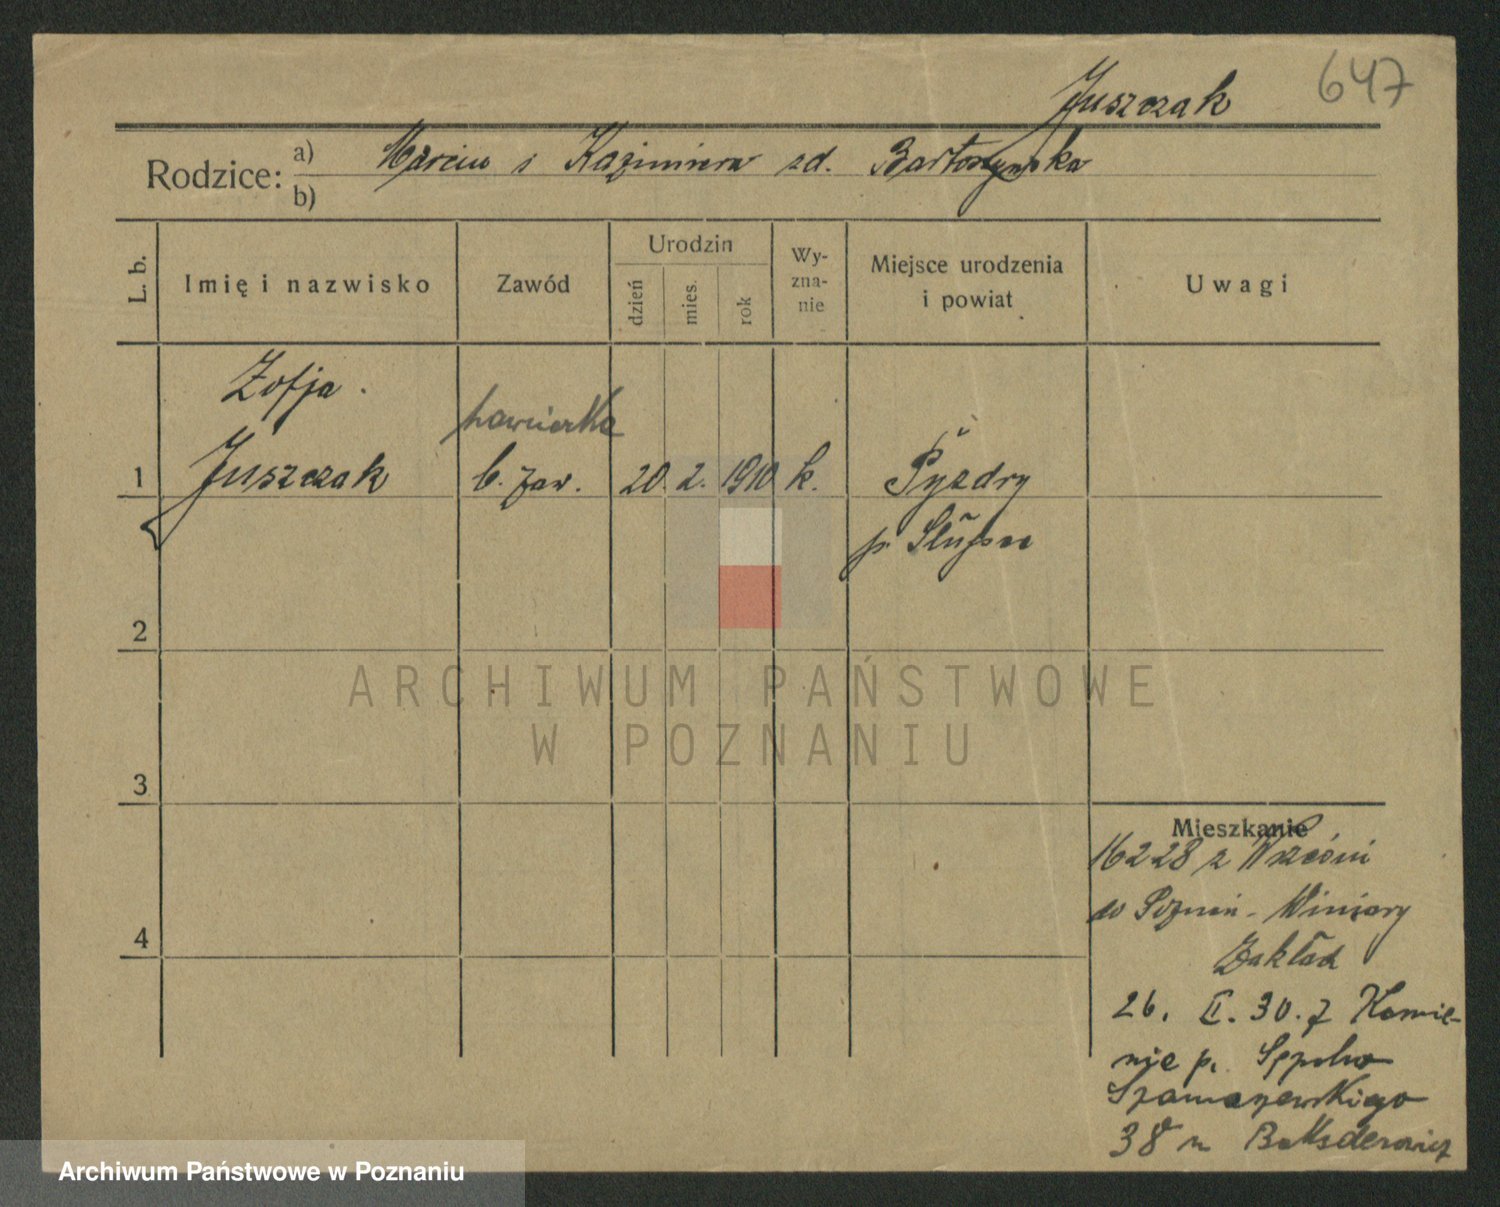 647
Juszczak
Rodzice: a) Marcin i Kazimiera zd. Bartoszyńska
b)
L. b.
Imię i nazwisko
Zawód
Urodzin
dzień
mies.
rok
Wy-
zna-
nie
Miejsce urodzenia
i powiat
Uwagi
Zofja
hawciarka
1 Juszczak b. zaw. 20. 2. 1910 k. Pyzdry
p. Słupca
2
3
4
Mieszkanie
16 2 28 z Wrześni
w Poznań - Winiary
Zakład
26. II. 30. z Kamie-
nie p.
Szamarzewskiego
38
ARCHIWUM PAŃSTWOWE
W POZNANIU
Archiwum Państwowe w Poznaniu